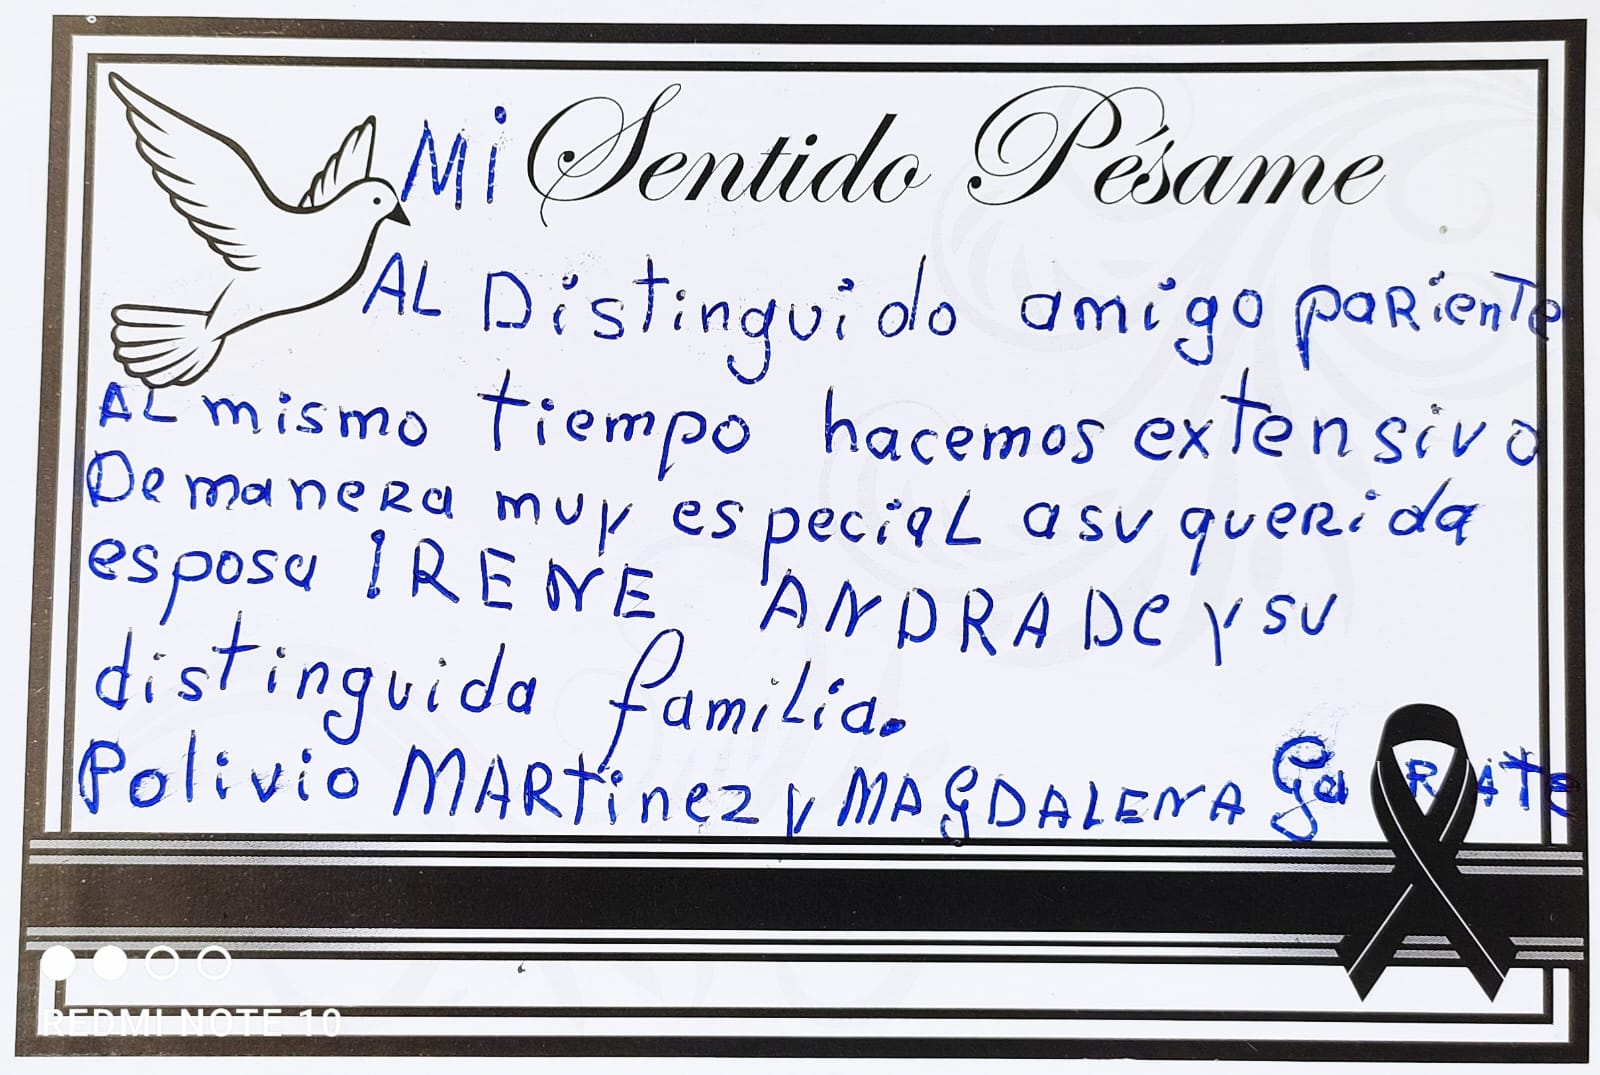 Mi Sentido Pésame
AL Distinguido amigo paRiente
AL mismo tiempo hacemos extensivo
De maneRa muy especiaL a su queRida
esposa IRENE ANDRADe y su
distinguida familia.
Polivio MARtinez y MAGDALENA GaRAte
REDMI NOTE 10